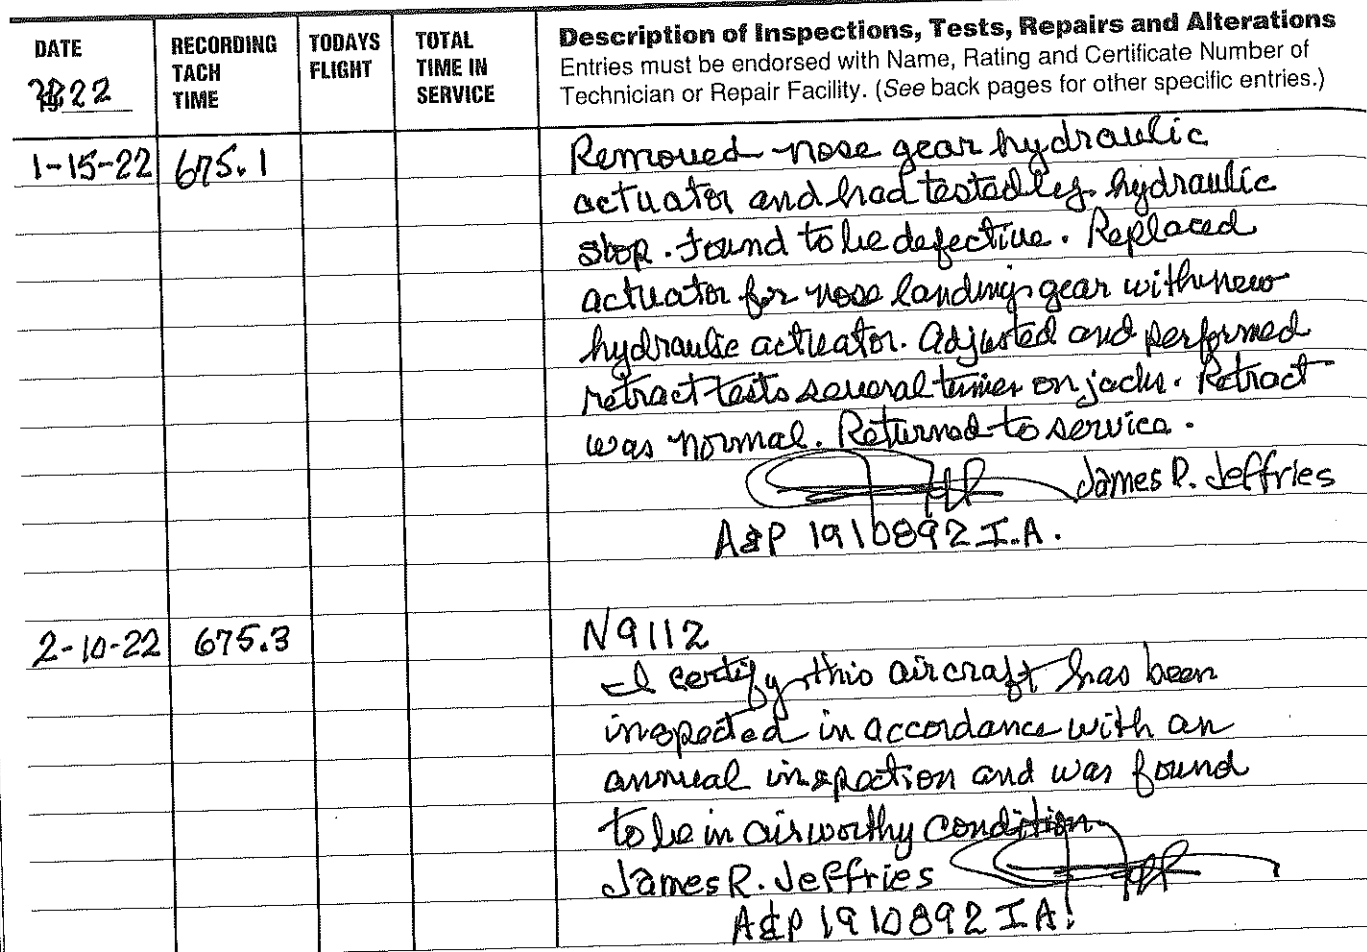 DATE RECORDING TACH TIME TODAYS FLIGHT TOTAL TIME IN SERVICE Description of Inspections, Tests, Repairs and Alterations
Entries must be endorsed with Name, Rating and Certificate Number of
Technician or Repair Facility. (See back pages for other specific entries.)
22
1-15-22 675.1 Removed nose gear hydraulic
actuator and had tested by hydraulic
shop. Found to be defective. Replaced
actuator for nose landing gear with new
hydraulic actuator. Adjusted and performed
retract tests several times on jacks. Retract
was normal. Returned to service.
James R. Jeffries
A&P 1910892 I.A.
2-10-22 675.3 N9112
I certify this aircraft has been
inspected in accordance with an
annual inspection and was found
to be in airworthy condition
James R. Jeffries
A&P 1910892 IA.